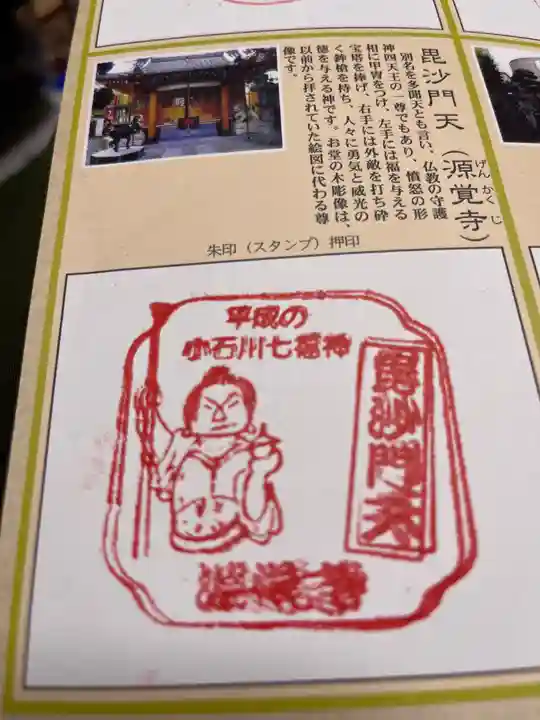 毘沙門天（源覚寺）
げんかくじ
別名を多聞天とも言い、仏教の守護
神四天王の一尊でもあり、憤怒の形
相に甲冑をつけ、左手には福を与える
宝塔を捧げ、右手には外敵を打ち砕
く鉾槍を持ち、人々に勇気と威光の
徳を与える神です。お堂の木彫像は、
以前から拝されていた絵図に代わる尊
像です。
朱印（スタンプ）押印
平成の
小石川七福神
毘沙門天
源覚寺